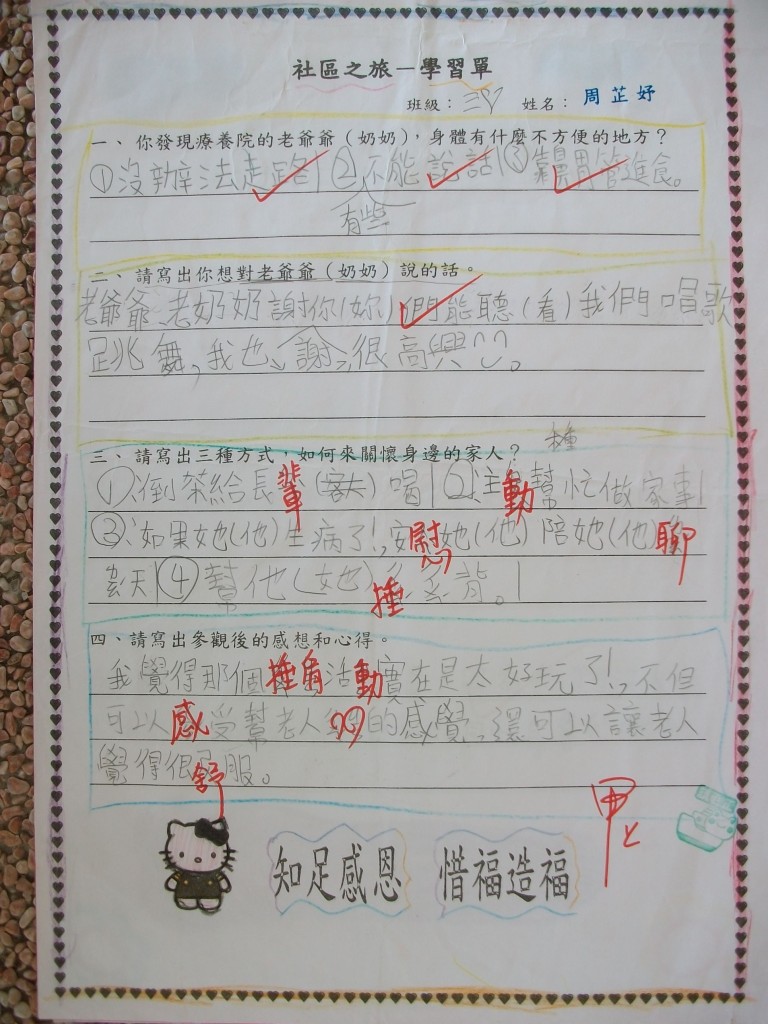 社區之旅－學習單
班級： 姓名： 周芷妤
一、你發現療養院的老爺爺（奶奶），身體有什麼不方便的地方？
①沒辦法走路 ②不能說話 ③靠胃管進食。
有些
二、請寫出你想對老爺爺（奶奶）說的話。
老爺爺、老奶奶謝你（妳）們能聽（看）我們唱歌
跳舞，我也謝謝，很高興。
三、請寫出三種方式，如何來關懷身邊的家人？
①倒茶給長輩喝 ②主動幫忙做家事
③如果她（他）生病了！，安慰她（他）陪她（他）聊
天 ④幫他（她）捶背。
四、請寫出參觀後的感想和心得。
我覺得那個捶肩活動實在是太好玩了！，不但
可以感受幫老人的感覺，還可以讓老人
覺得很舒服。
甲上
知足感恩 惜福造福